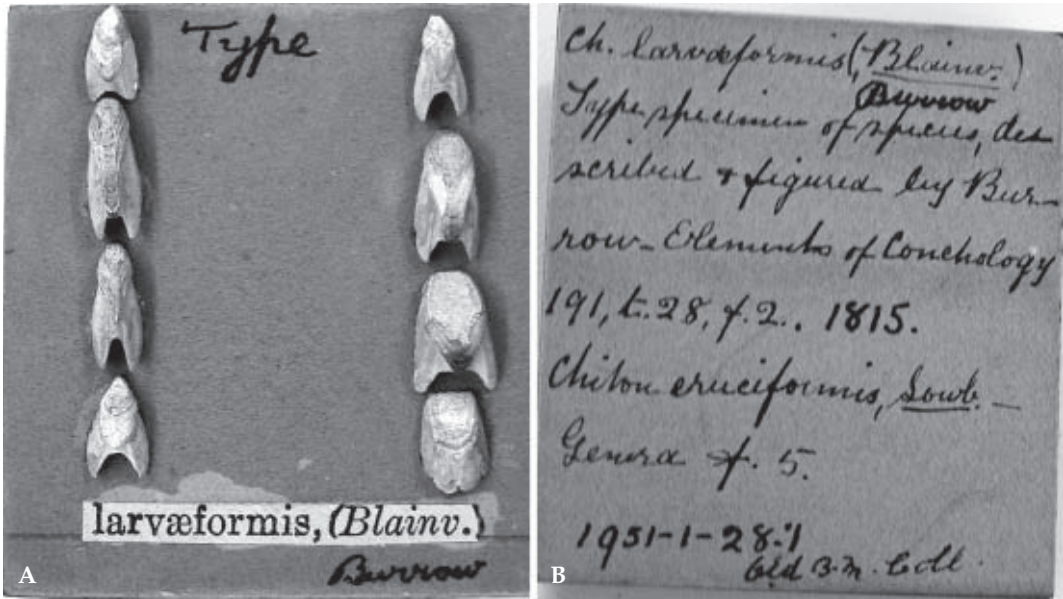 Type
larvæformis, (Blainv.)
Burrow
A
Ch. larvæformis (Blainv.)
Burrow
Type specimen of species, des
scribed & figured by Bur-
row - Elements of Conchology
191, t. 28, f. 2.. 1815.
Chiton eruciformis, Sowb. -
Genera f. 5.
1951-1-28.1
Old B.M. Coll.
B